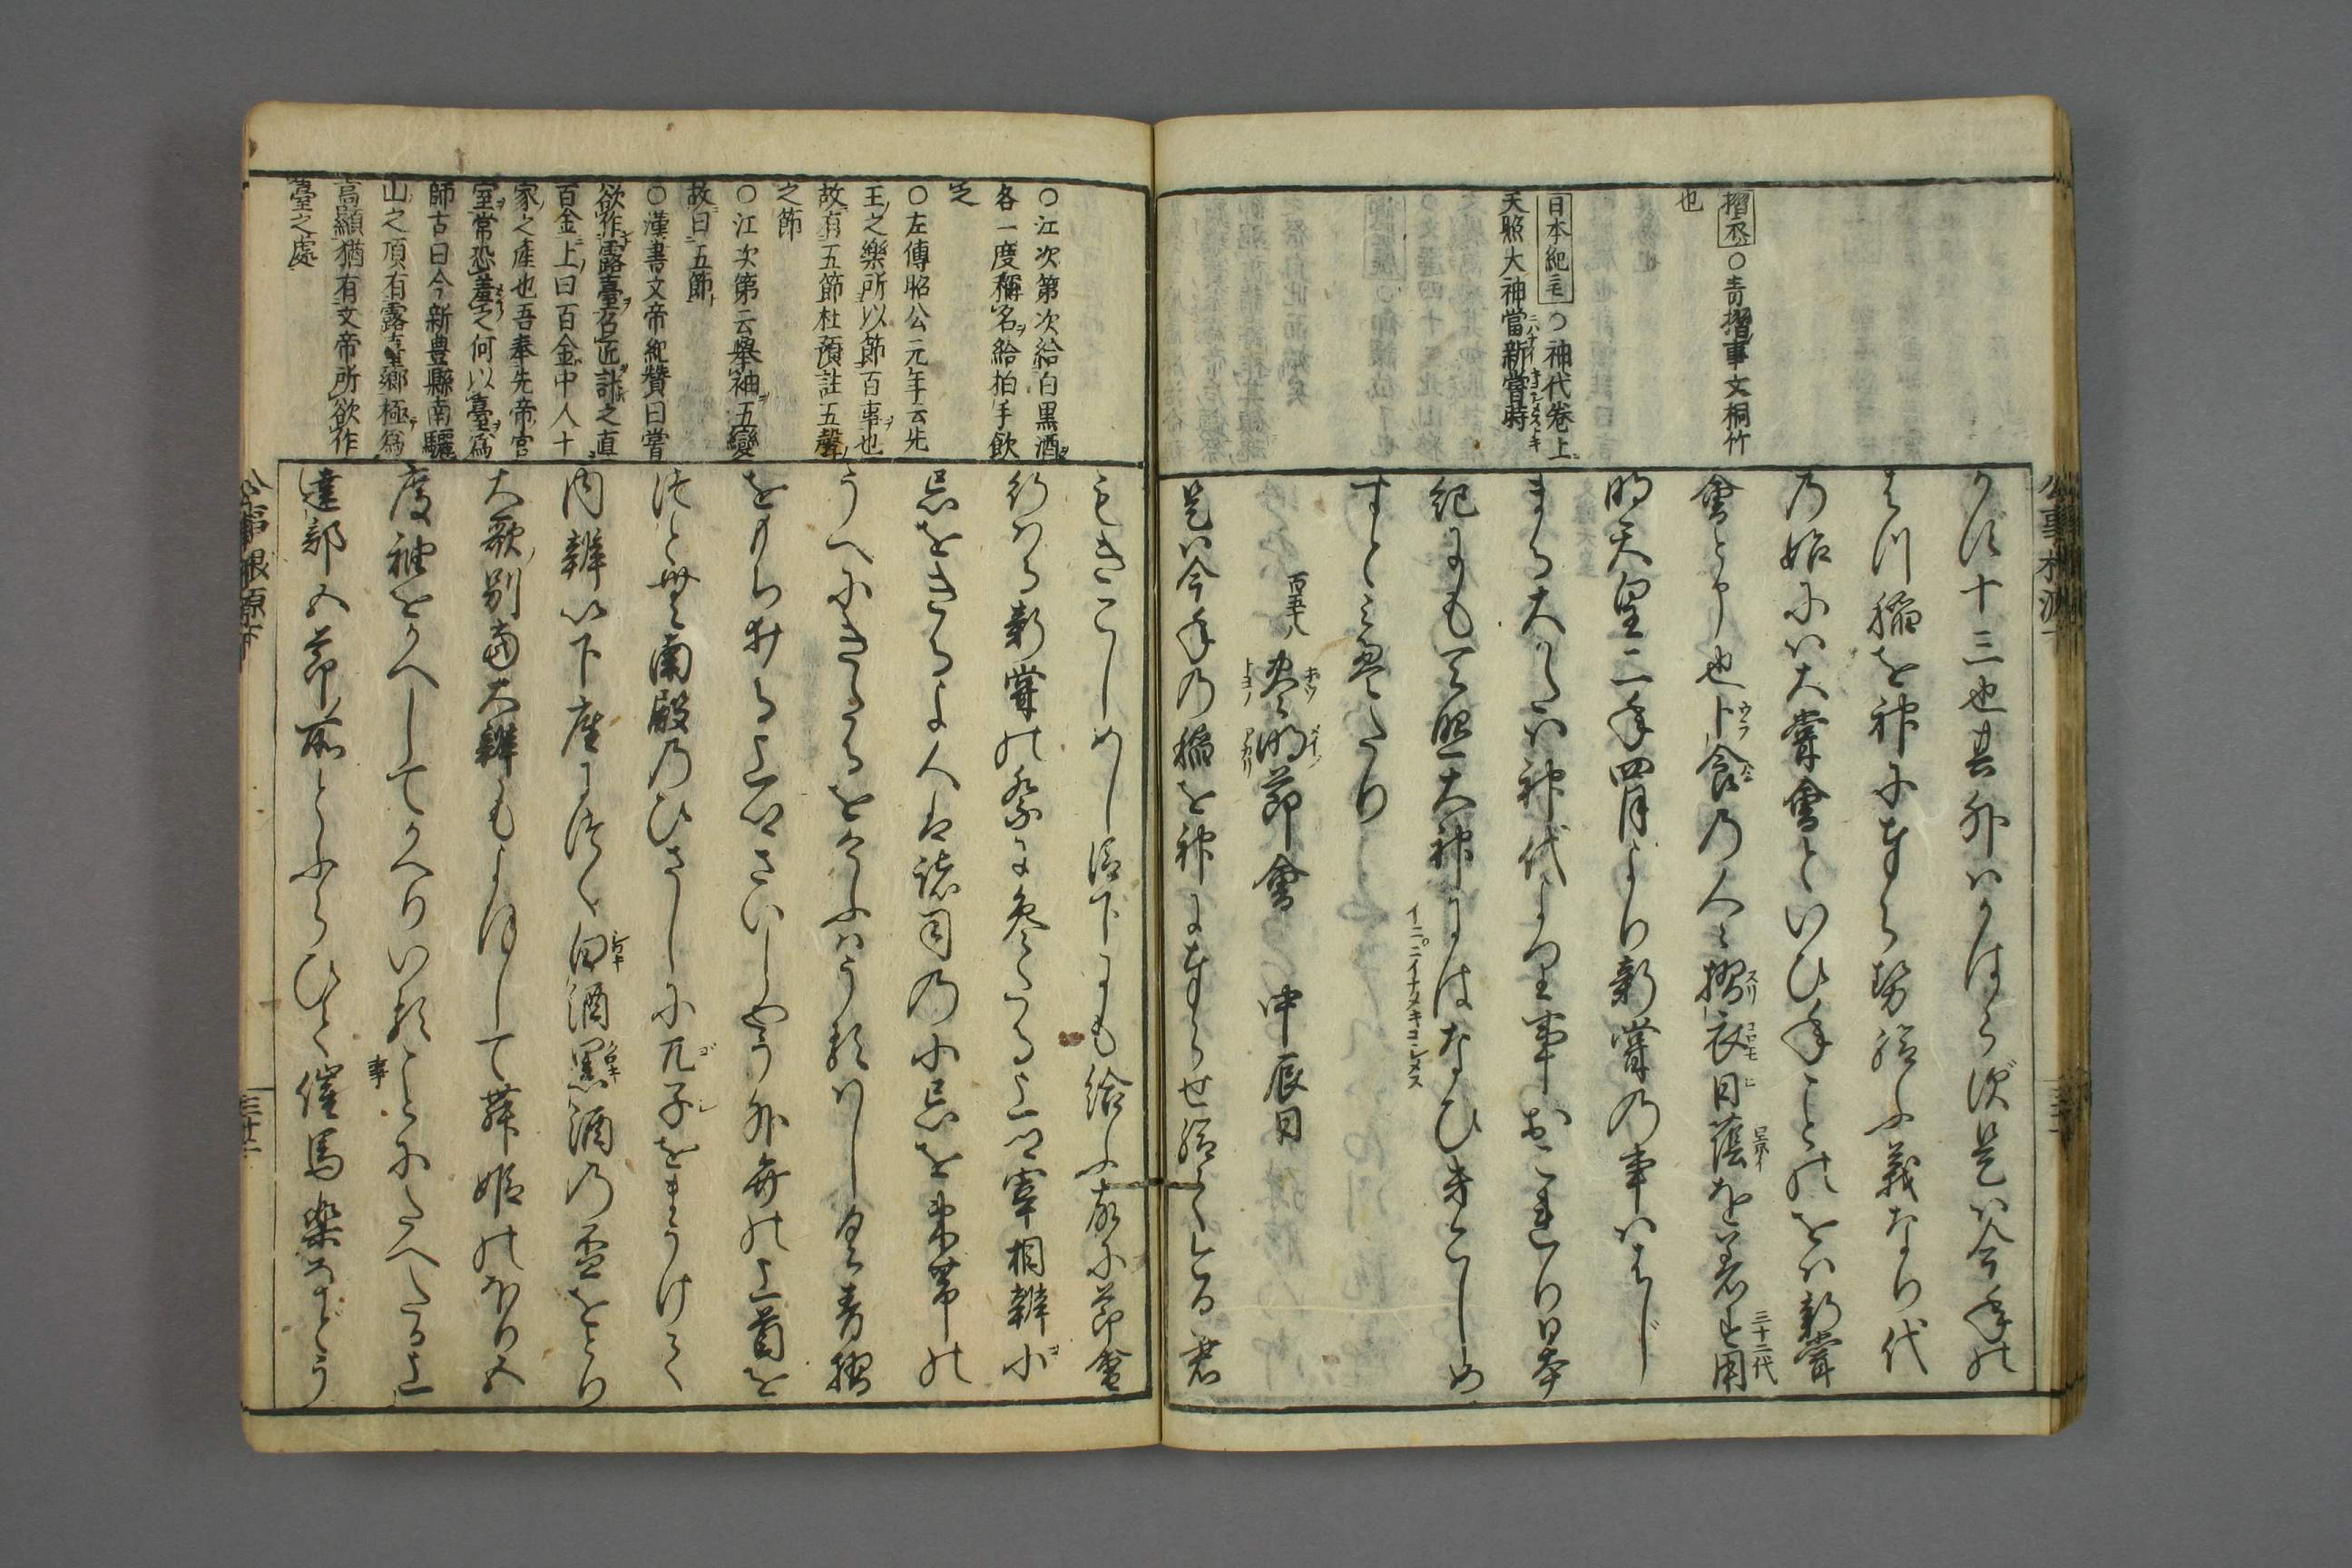 摺衣○青摺事文桐竹
也
日本紀ニモ○神代巻上
天照大神當新嘗時
うげ十三也其外ハかはらず是ハ今年の
はつ稲を神に奉らせ給ふ義なり代
の始にハ大嘗會といひ年ことのをハ新嘗
會と申也卜食の人々摺衣日蔭を着す用
明天皇二年四月より新嘗の事ハはじ
まる大かたハ神代より事おこれり日本
紀にも天照大神にはなひきこしめ
すとみえたり
百五十八 豊明節會 中辰日
是ハ今年の稲を神に奉らせ給て今日君
○江次第次給白黒酒
各一度稱名給拍手飲
之
○左傳昭公元年云先
王之樂所以節百事也
故有五節杜預註五聲
之節
○江次第云擧袖五變
故曰五節
○漢書文帝紀贊曰嘗
欲作露臺召匠計之直
百金上曰百金中人十
家之産也吾奉先帝宮
室常恐羞之何以臺爲
師古曰今新豊縣南驪
山之頂有露臺郷極爲
高顯猶有文帝所欲作
臺之處
もきこしめし臣下にも給ふ故に節會
行はる新嘗の祭に參たる上卿宰相辨小
忌をきるよ人は諸司の小忌を束帯の
うへにきたるをけふハうるはしく青摺
をもちゐる上卿さいしやう外弁の上首を
つとむ南殿のひさしに兀子をまうけて
内辨以下座につく白酒黒酒の盃をとり
大歌別當大辨もよほして舞姫のぼり五
度袖をかへしてかへりいることにたへたる上
達部五節所とふらひて催馬楽などう
公事根源下